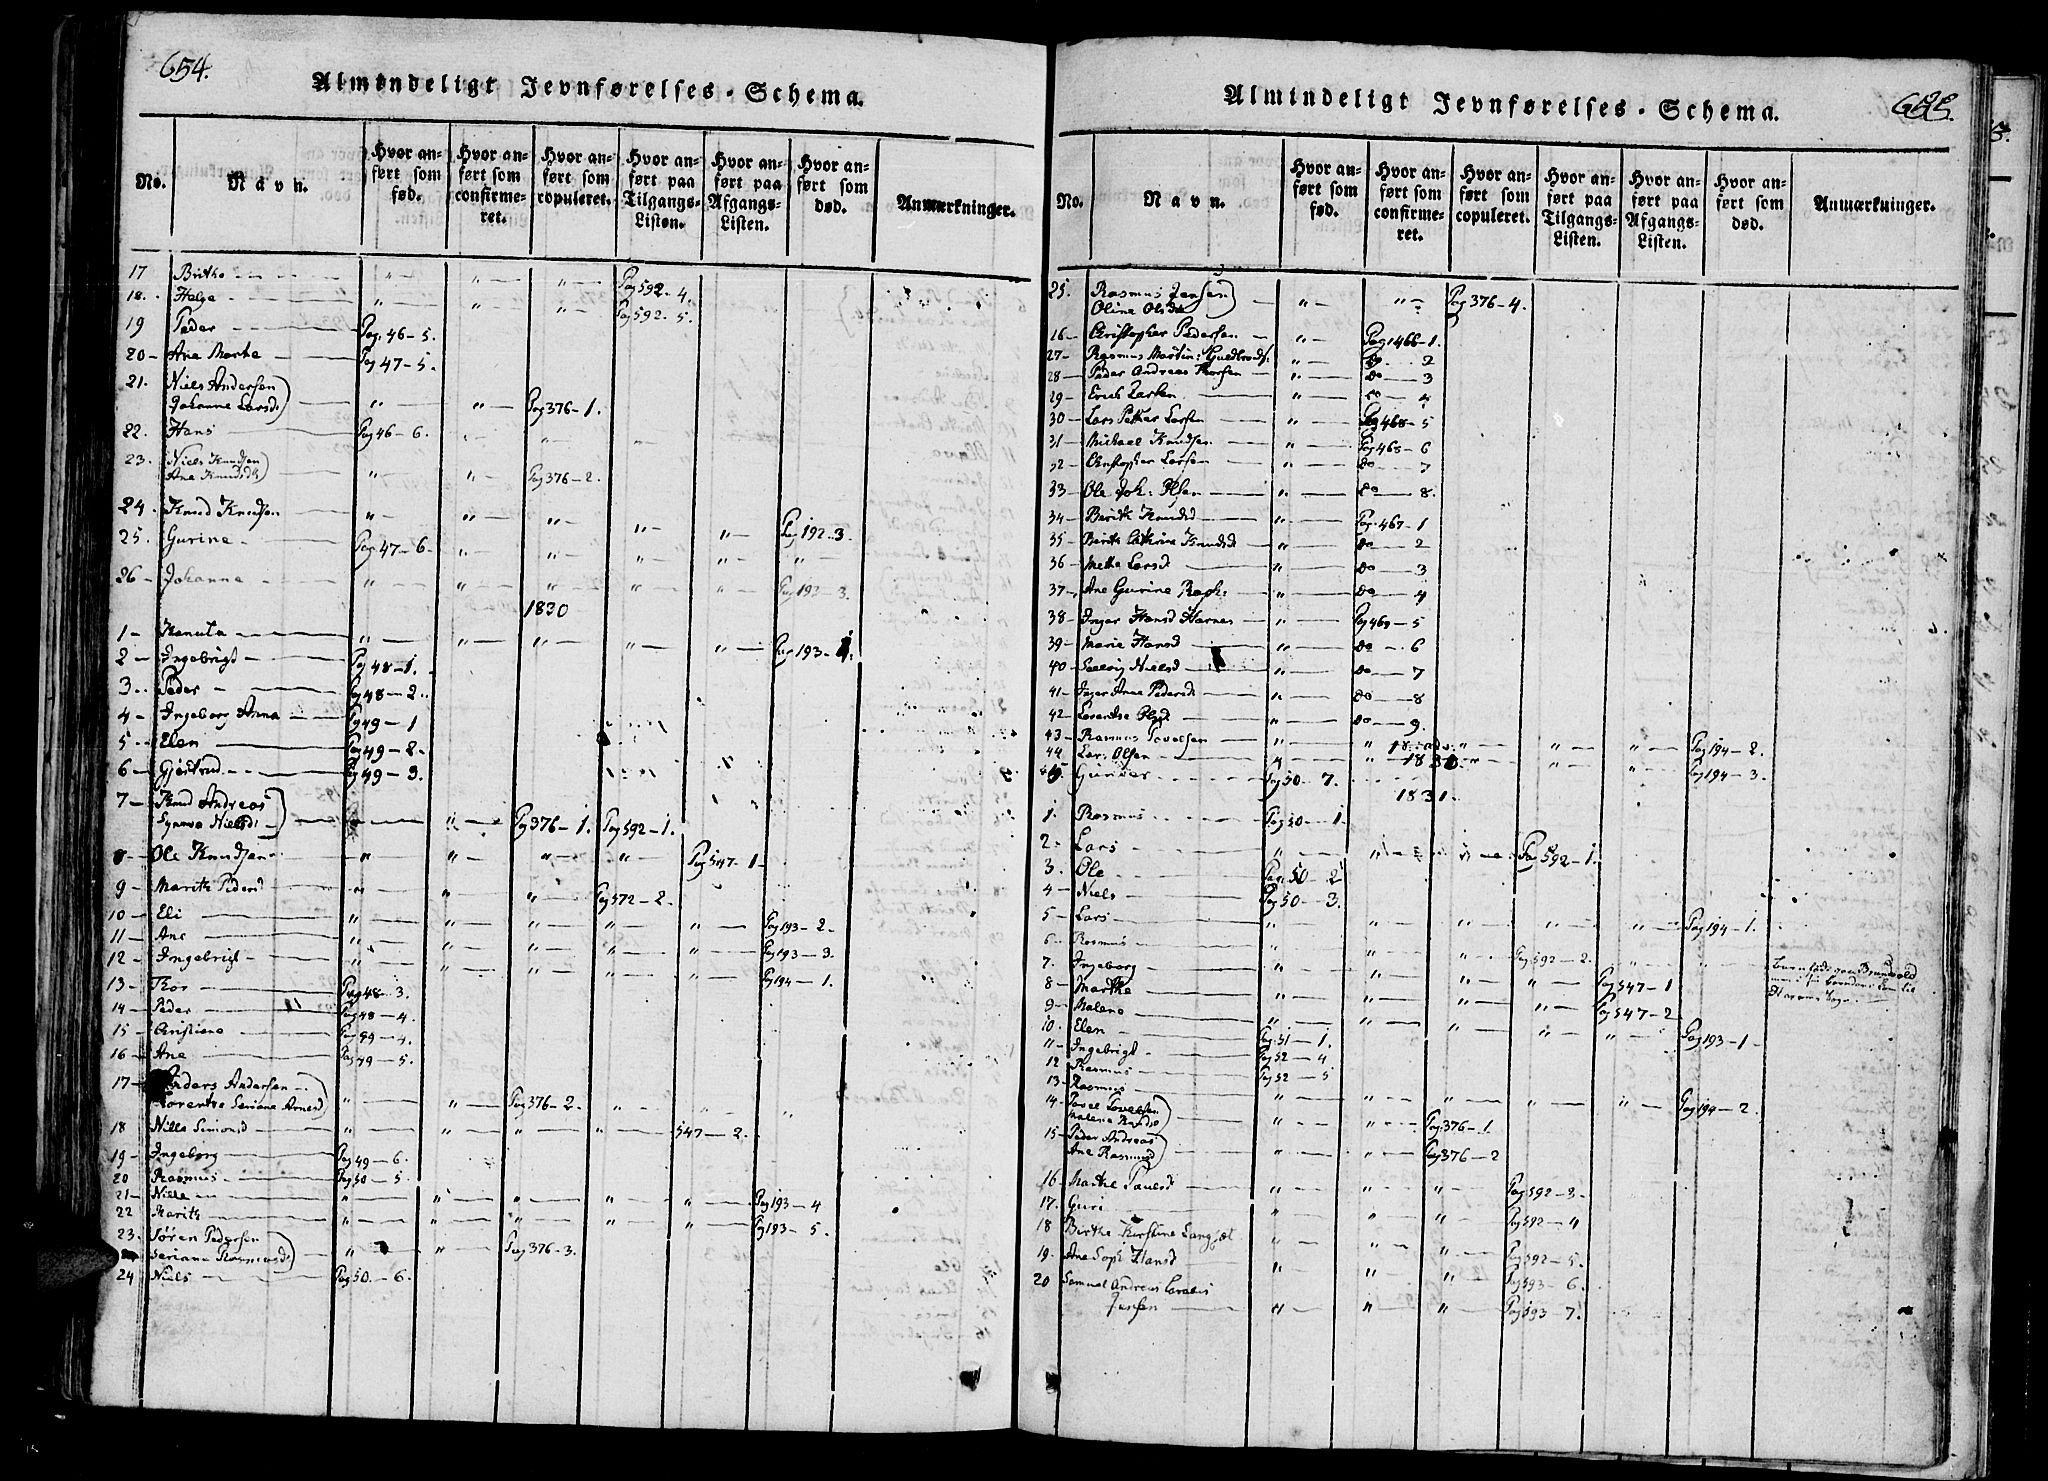 654.
Almindeligt Jevnførelses-Schema.
No.
Navn.
Hvor an-
ført som
fød.
Hvor an-
ført som
confirme-
ret.
Hvor an-
ført som
copuleret.
Hvor an-
ført paa
Tilgangs-
Listen.
Hvor an-
ført paa
Afgangs-
Listen.
Hvor an-
ført som
død.
Anmærkninger.
17 Birthe Pag 592-4.
18. Helge Pag 592-5.
19 Peder Pag. 46-5.
20- Ane Marta Pag 47-5.
21. Niels Andersen
Johanne Larsd. Pag 376-1.
22. Hans Pag 46-6.
23. Niels Knudsen
Ane Knudsd. Pag 376-2.
24. Knud Knudsen Pag 192-3.
25. Gurine Pag 47-6.
26- Johanna Pag 193-3.
1830
1- Kanuta Pag 193-1.
2- Ingebrigt Pag 48-1.
3.. Peder Pag 48-2.
4- Ingeborg Anna Pag 49-1
5.. Elen Pag 49-2.
6- Gjertrud Pag 49-3.
7- Knud Andreas
Synneva Nielsd. Pag 376-1. Pag 592-1.
8- Ole Knudsen Pag 547-1
9- Marith Pedersd Pag 572-2.
10- Eli Pag 193-2.
11- Ane Pag 193-3.
12- Ingebrigt Pag 194-1.
13- Thor Pag 48-3.
14- Peder Pag 48-4.
15- Christiane Pag 49-4.
16- Ane Pag 49-5.
17- Anders Andersen
Lorentse Seriane Arnesd Pag 376-2.
18 Nille Simonsd 547-2.
19- Ingeborg Pag 49-6.
20 Rasmus Pag 50-5.
21- Nille Pag 193-4
22 Marith Pag 193-5.
23. Søren Pedersen
Seriane Rasmusd. Pag 376-3.
24 Niels Pag 50.-6.
655.
Almindeligt Jevnførelses-Schema.
No.
Navn.
Hvor an-
ført som
fød.
Hvor an-
ført som
confirme-
ret.
Hvor an-
ført som
copuleret.
Hvor an-
ført paa
Tilgangs-
Listen.
Hvor an-
ført paa
Afgangs-
Listen.
Hvor an-
ført som
død.
Anmærkninger.
25. Rasmus Jensen
Oline Olsd. Pag 376-4.
26- Christopher Pedersen Pag. 466-1.
27- Rasmus Martin: Guldbrands: do 2
28- Peder Andreas Thorsen do 3
29- Erich Larsen do 4
30- Lars Petter Larsen Pag 468-5
31- Michael Knudsen Pag 468-6
32- Christopher Larsen do 7
33- Ole Joh: Olsen do 8.
34- Berith Knudsd Pag. 467-1
35- Berith Cathrine Knudsd do 2
36- Mette Larsd do 3
37- Ane Gurine Raph: do 4
38- Inger Hansd Harnes Pag 469-5
39- Marie Hansd do 6
40- Solvig Nielsd do 7
41- Inger Anne Pedersd do 8
42- Lorentse Olsd do 9.
43- Rasmus Povelsen Pag 194-2.
44. Lars Olsen 1830 Pag 194-3.
45 Pag 50-7.
1831.
1. Rasmus Pag 50-1
2. Lars Pag 592-1.
3. Ole Pag. 50-2
4- Niels Pag 50-3.
5- Lars Pag 194-1.
6- Rasmus Pag 592-2.
7. Ingeborg Pag 547-1
8- Marthe Pag 547-2
9- Malene Pag 193-1
10. Elen Pag. 51-1.
11- Ingebrigt Pag 52-4
12 Rasmus Pag 52-5
13- Rasmus Pag 194-2.
14. Povel Povelsen
Malene Knudsd Pag. 376-1.
15- Peder Andreas
Ane Rasmusd Pag 376-2
16- Marthe Paulsd Pag 592-3.
17. Guri Pag 592-4
18 Birthe Kirstine Langsæt Pag 592-5.
19. Ane Soph. Hansd Pag 593-6.
20 Samuel Andreas
Jensen Pag 593-7.